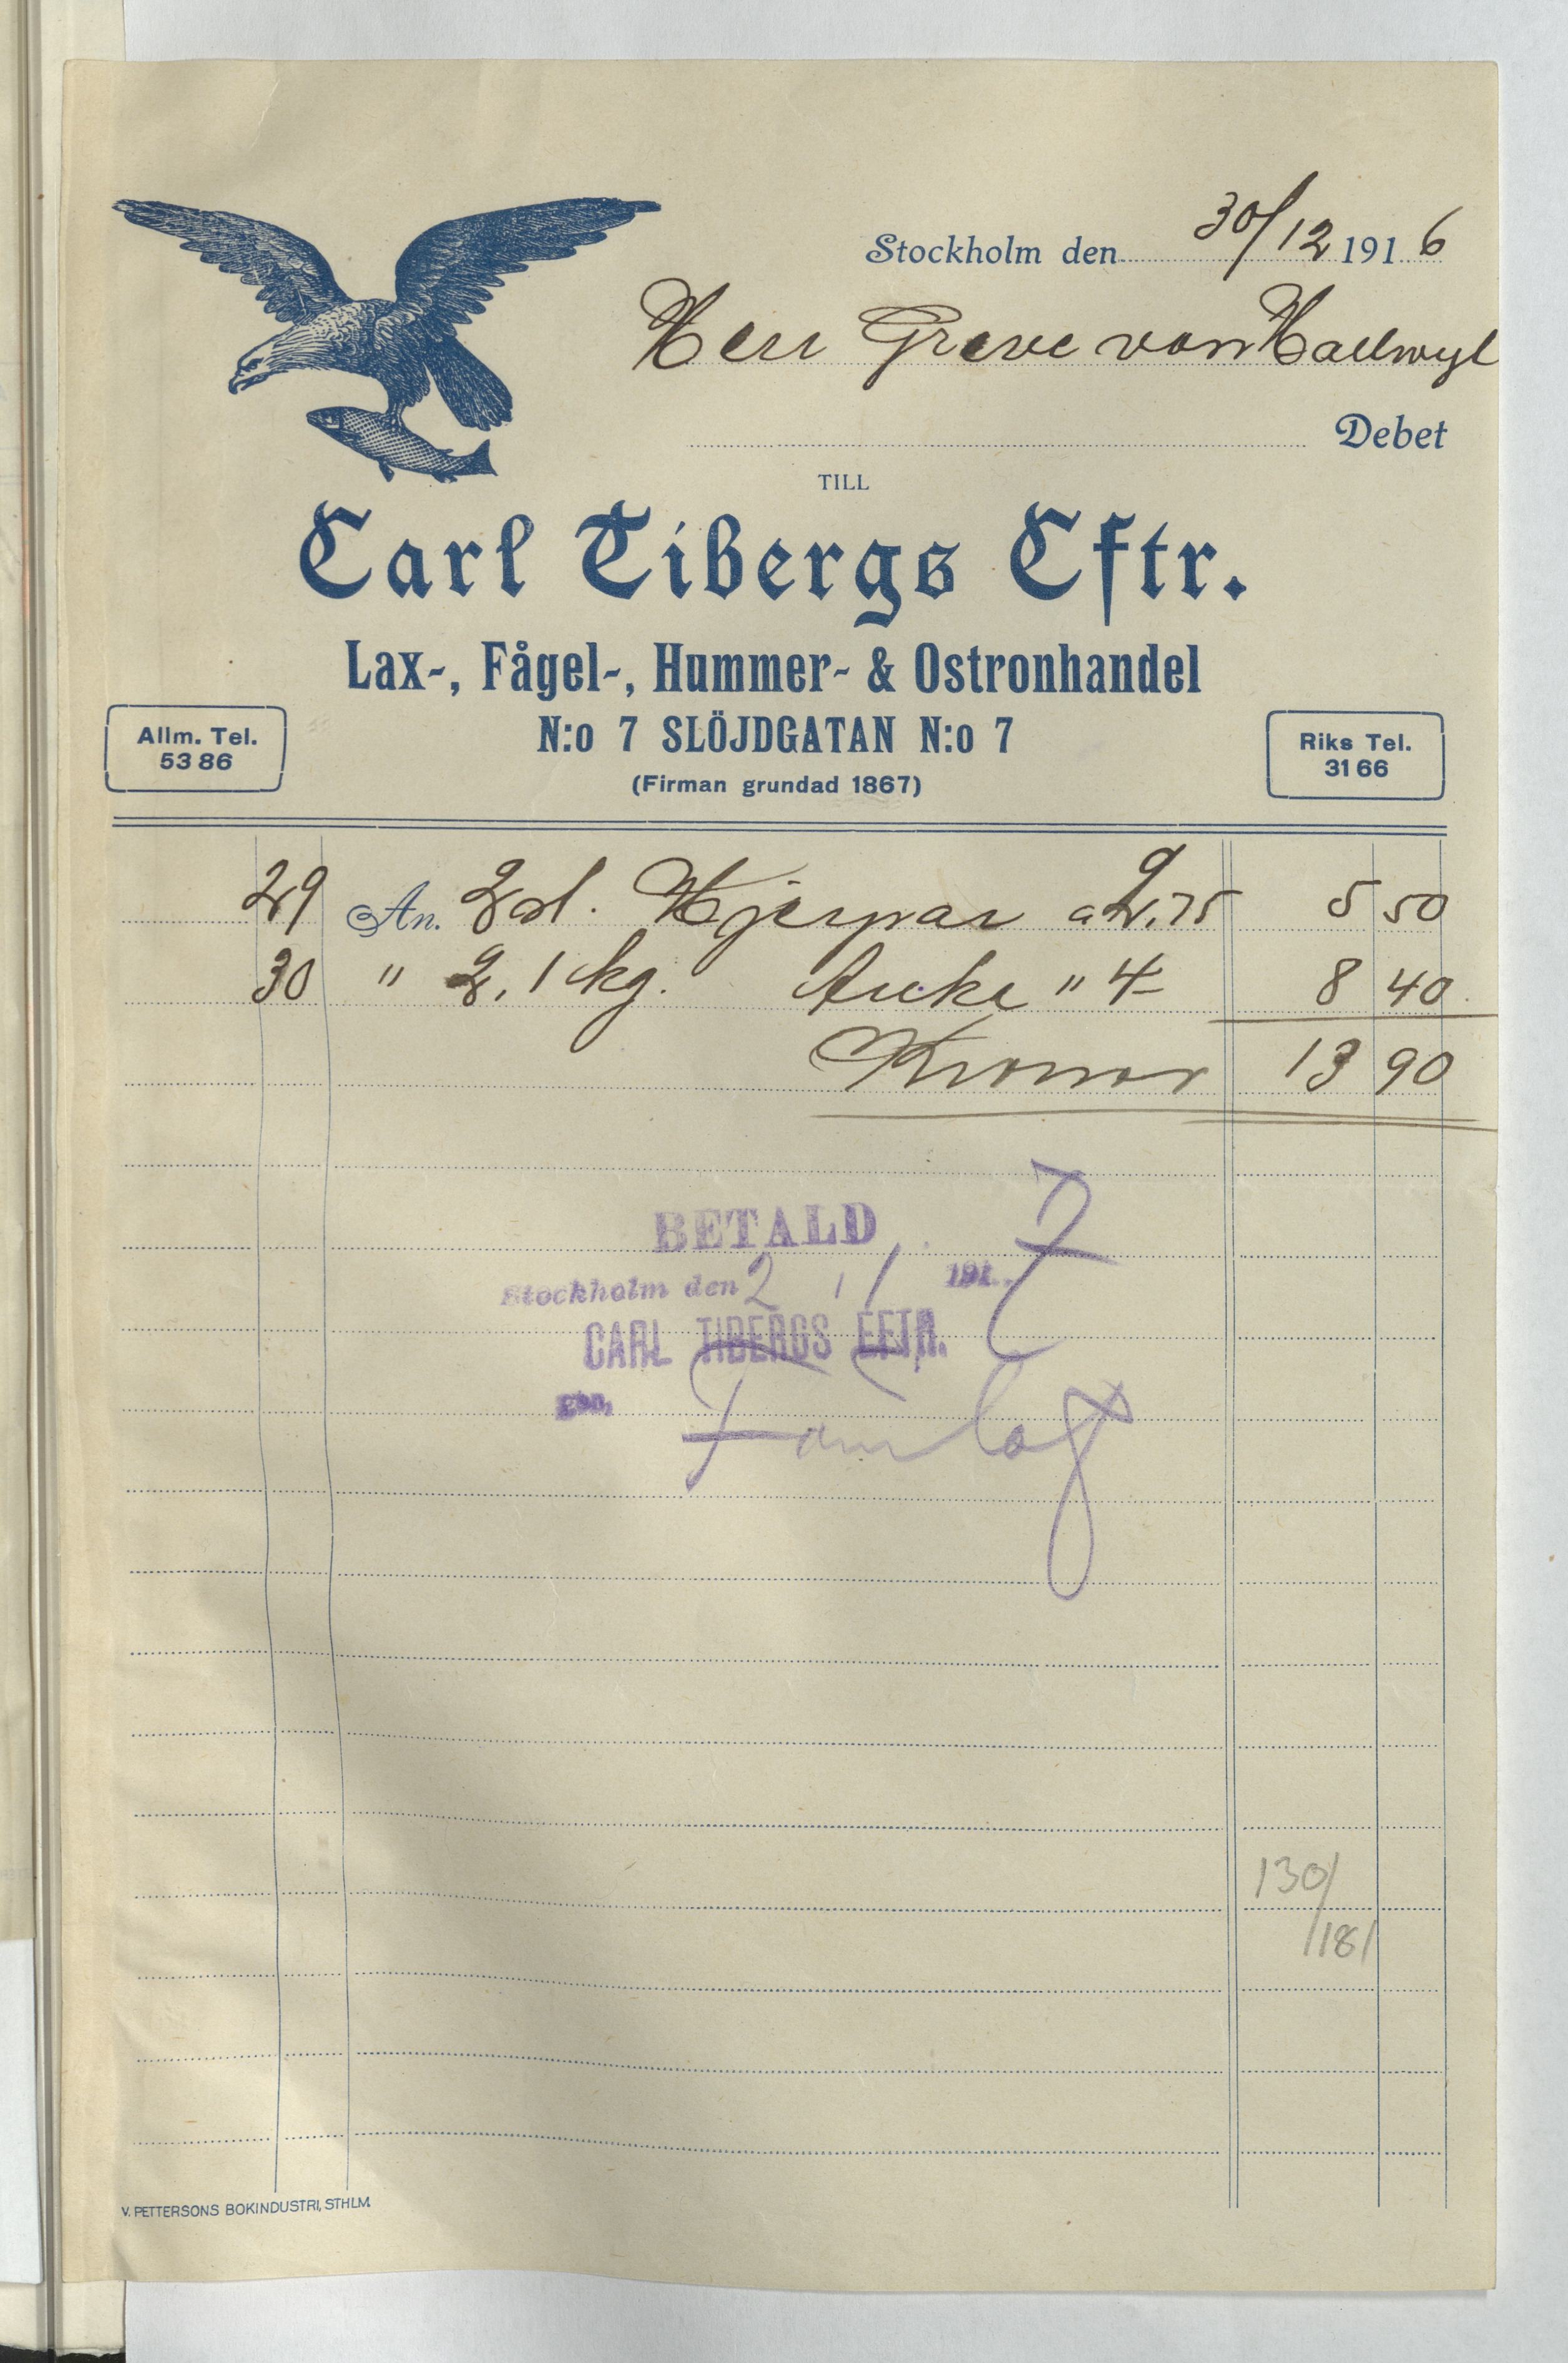 Stockholm den 30/12 1916
Herr Greve von Hallwyl
Debet
TILL
Carl Tibergs Eftr.
Lax-, Fågel-, Hummer- & Ostronhandel
N:o 7 SLÖJDGATAN N:o 7
(Firman grundad 1867)
Allm. Tel.
53 86
Riks Tel.
31 66
29 An. 2 st. Hjerpar a 2,75 5 50
30 " 2,1 kg. " 4- 8 40
Kronor 13 90
BETALD
Stockholm den 2/1 1917
CARL TIBERGS EFTR.
gm.
130/
/181
V. PETTERSONS BOKINDUSTRI, STHLM.